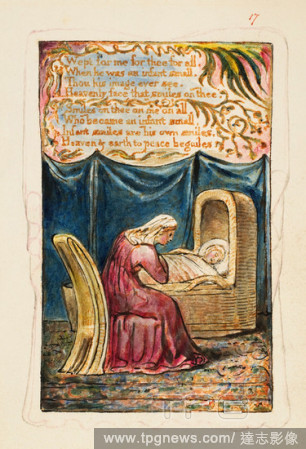 17
Wept for me for thee for all.
When he was an infant small.
Thou his image ever see.
Heavenly face that smiles on thee.
Smiles on thee on me on all
Who became an infant small
Infant smiles are his own smiles,
Heaven & earth to peace beguiles
www.tpgnews.com/ 達志影像